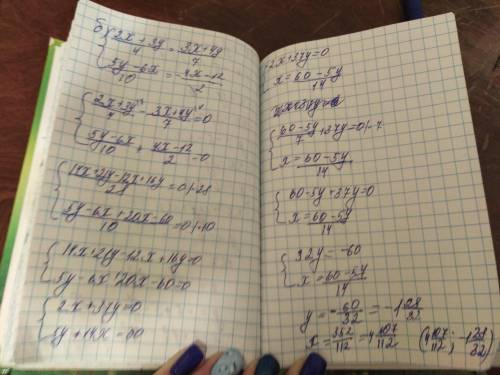 б) { (2x+3y)/4 = (3x+4y)/7
(5y-6x)/10 = -(4x-12)/2
{ (2x+3y)/4 - (3x+4y)/7 = 0
(5y-6x)/10 + (4x-12)/2 = 0
{ (14x+21y-12x+16y)/28 = 0 |·28
(5y-6x+20x-60)/10 = 0 |·10
{ 14x+21y-12x+16y=0
5y-6x+20x-60=0
{ 2x+37y=0
5y+14x=60
{ 2x+37y=0
x = (60-5y)/14
{ (60-5y)/7 +37y=0 |·7
x = (60-5y)/14
{ 60-5y+37y=0
x = (60-5y)/14
{ 32y=-60
x = (60-5y)/14
y = -60/32 = -1 28/32